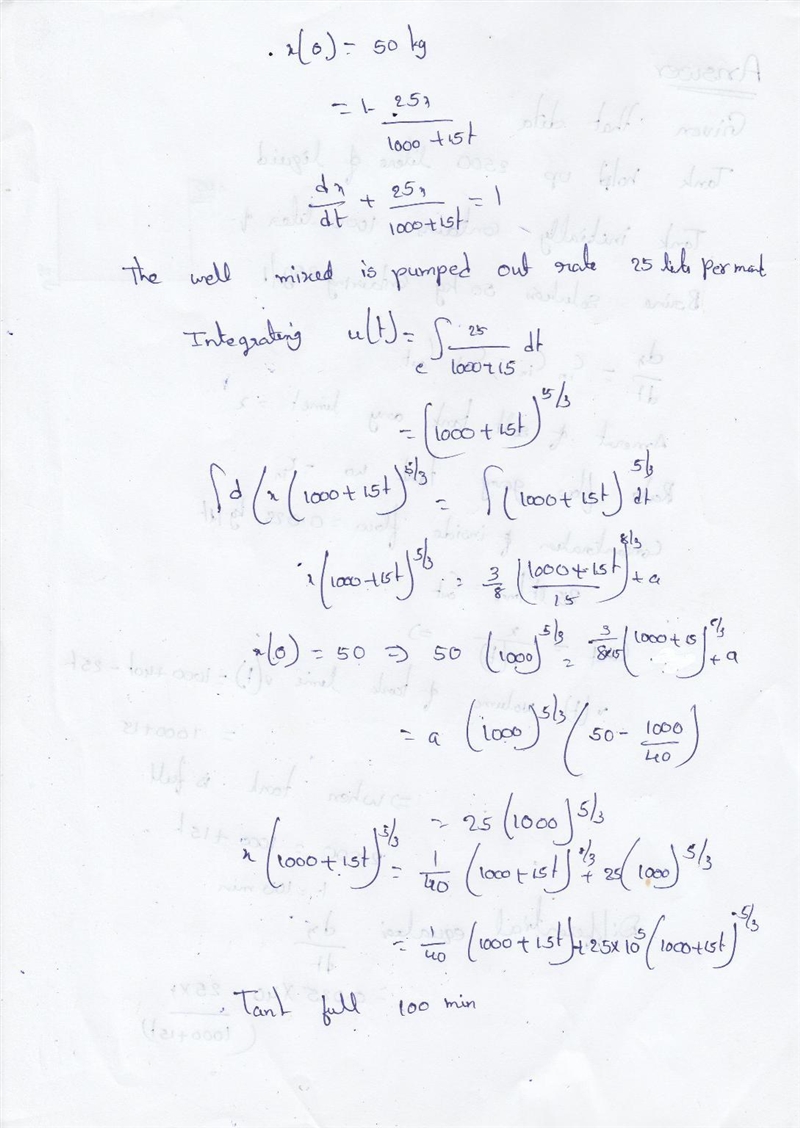 x(0) = 50 kg
= 1 - 25x / (1000 + 15t)
dx/dt + 25x / (1000 + 15t) = 1
The well mixed is pumped out rate 25 lits per
Integrating u(t) = e^∫ 25 / (1000 + 15 dt
= (1000 + 15t)^5/3
∫ d (x (1000 + 15t)^5/3 = ∫ (1000 + 15t)^5/3 dt
x (1000 + 15t)^5/3 = 3/8 (1000 + 15t)^8/3 / 15 + a
x(0) = 50 ⇒ 50 (1000)^5/3 = 3/8×15 (1000 + 15)^8/3 + a
= a (1000)^5/3 (50 - 1000/40)
= 25 (1000)^5/3
x (1000 + 15t)^5/3 = 1/40 (1000 + 15t)^8/3 + 25 (1000)^5/3
= 1/40 (1000 + 15t) + 25 × 10^5 (1000 + 15t)^-5/3
Tant full 100 min